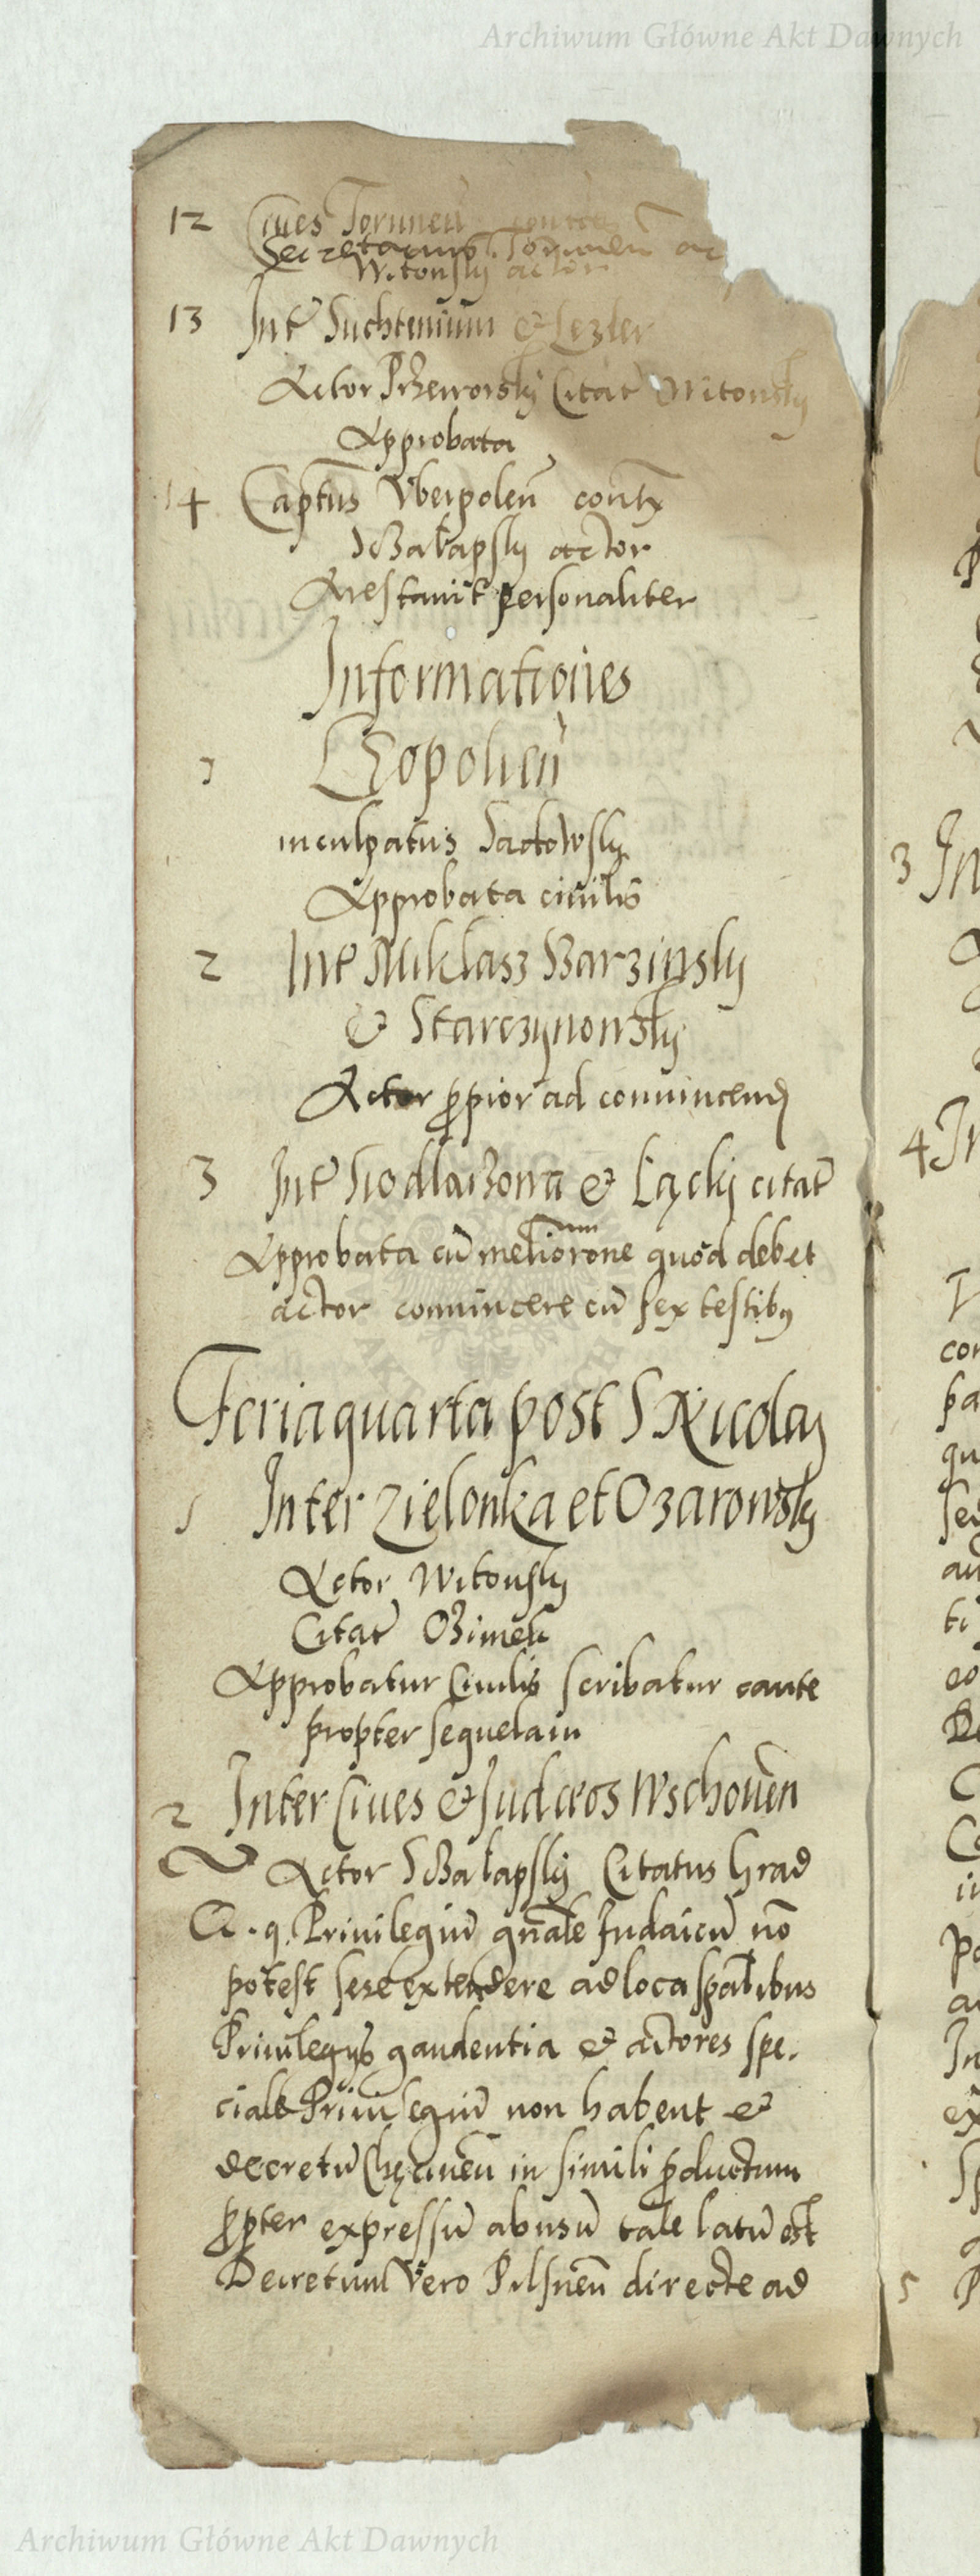 Archiwum Główne Akt Dawnych
12 Ciues Toruneñ contra
Secretarius Toruneñ ac
Witonsky actor
13 Inter Suchtenium & Lezler
Actor Przeworsky Citat Witonsky
Approbata
14 Captus Vberpoleñ contra
Szałapsky actor
Arestauit personaliter
Informationes
1 Leopolieñ
inculpatus Sadowsky
Approbata ciuilis
2 Inter Miklasz Barzinsky
& Starczynowsky
Actor ppior ad conuincend
3 Inter & Łącky citat
Approbata cũ meliorone quod debet
actor conuincere cũ sex testibus
Feria quarta post S Nicolaj
1 Inter Zielonka et Ozarowsky
Actor Witonsky
Citat
Approbatur Ciuilis scribatur caute
propter sequelam
2 Inter Ciues & Judæos Wschoueñ
Actor Szałapsky Citatus Grad
q. Priuilegiũ gnale Judaicũ nõ
potest sese extendere ad loca spalibus
Priuilegys gaudentia & actores spe-
ciale Priuilegiũ non habent &
decretũ Chęcineñ in simili pductum
ppter expressũ abusũ tale latũ est
Decretum Vero Pilsneñ directe ad
3 In
4 In
5
Archiwum Główne Akt Dawnych